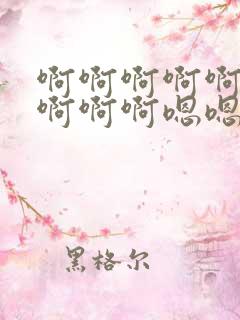 啊啊啊啊啊
啊啊啊嗯嗯
黑格尔